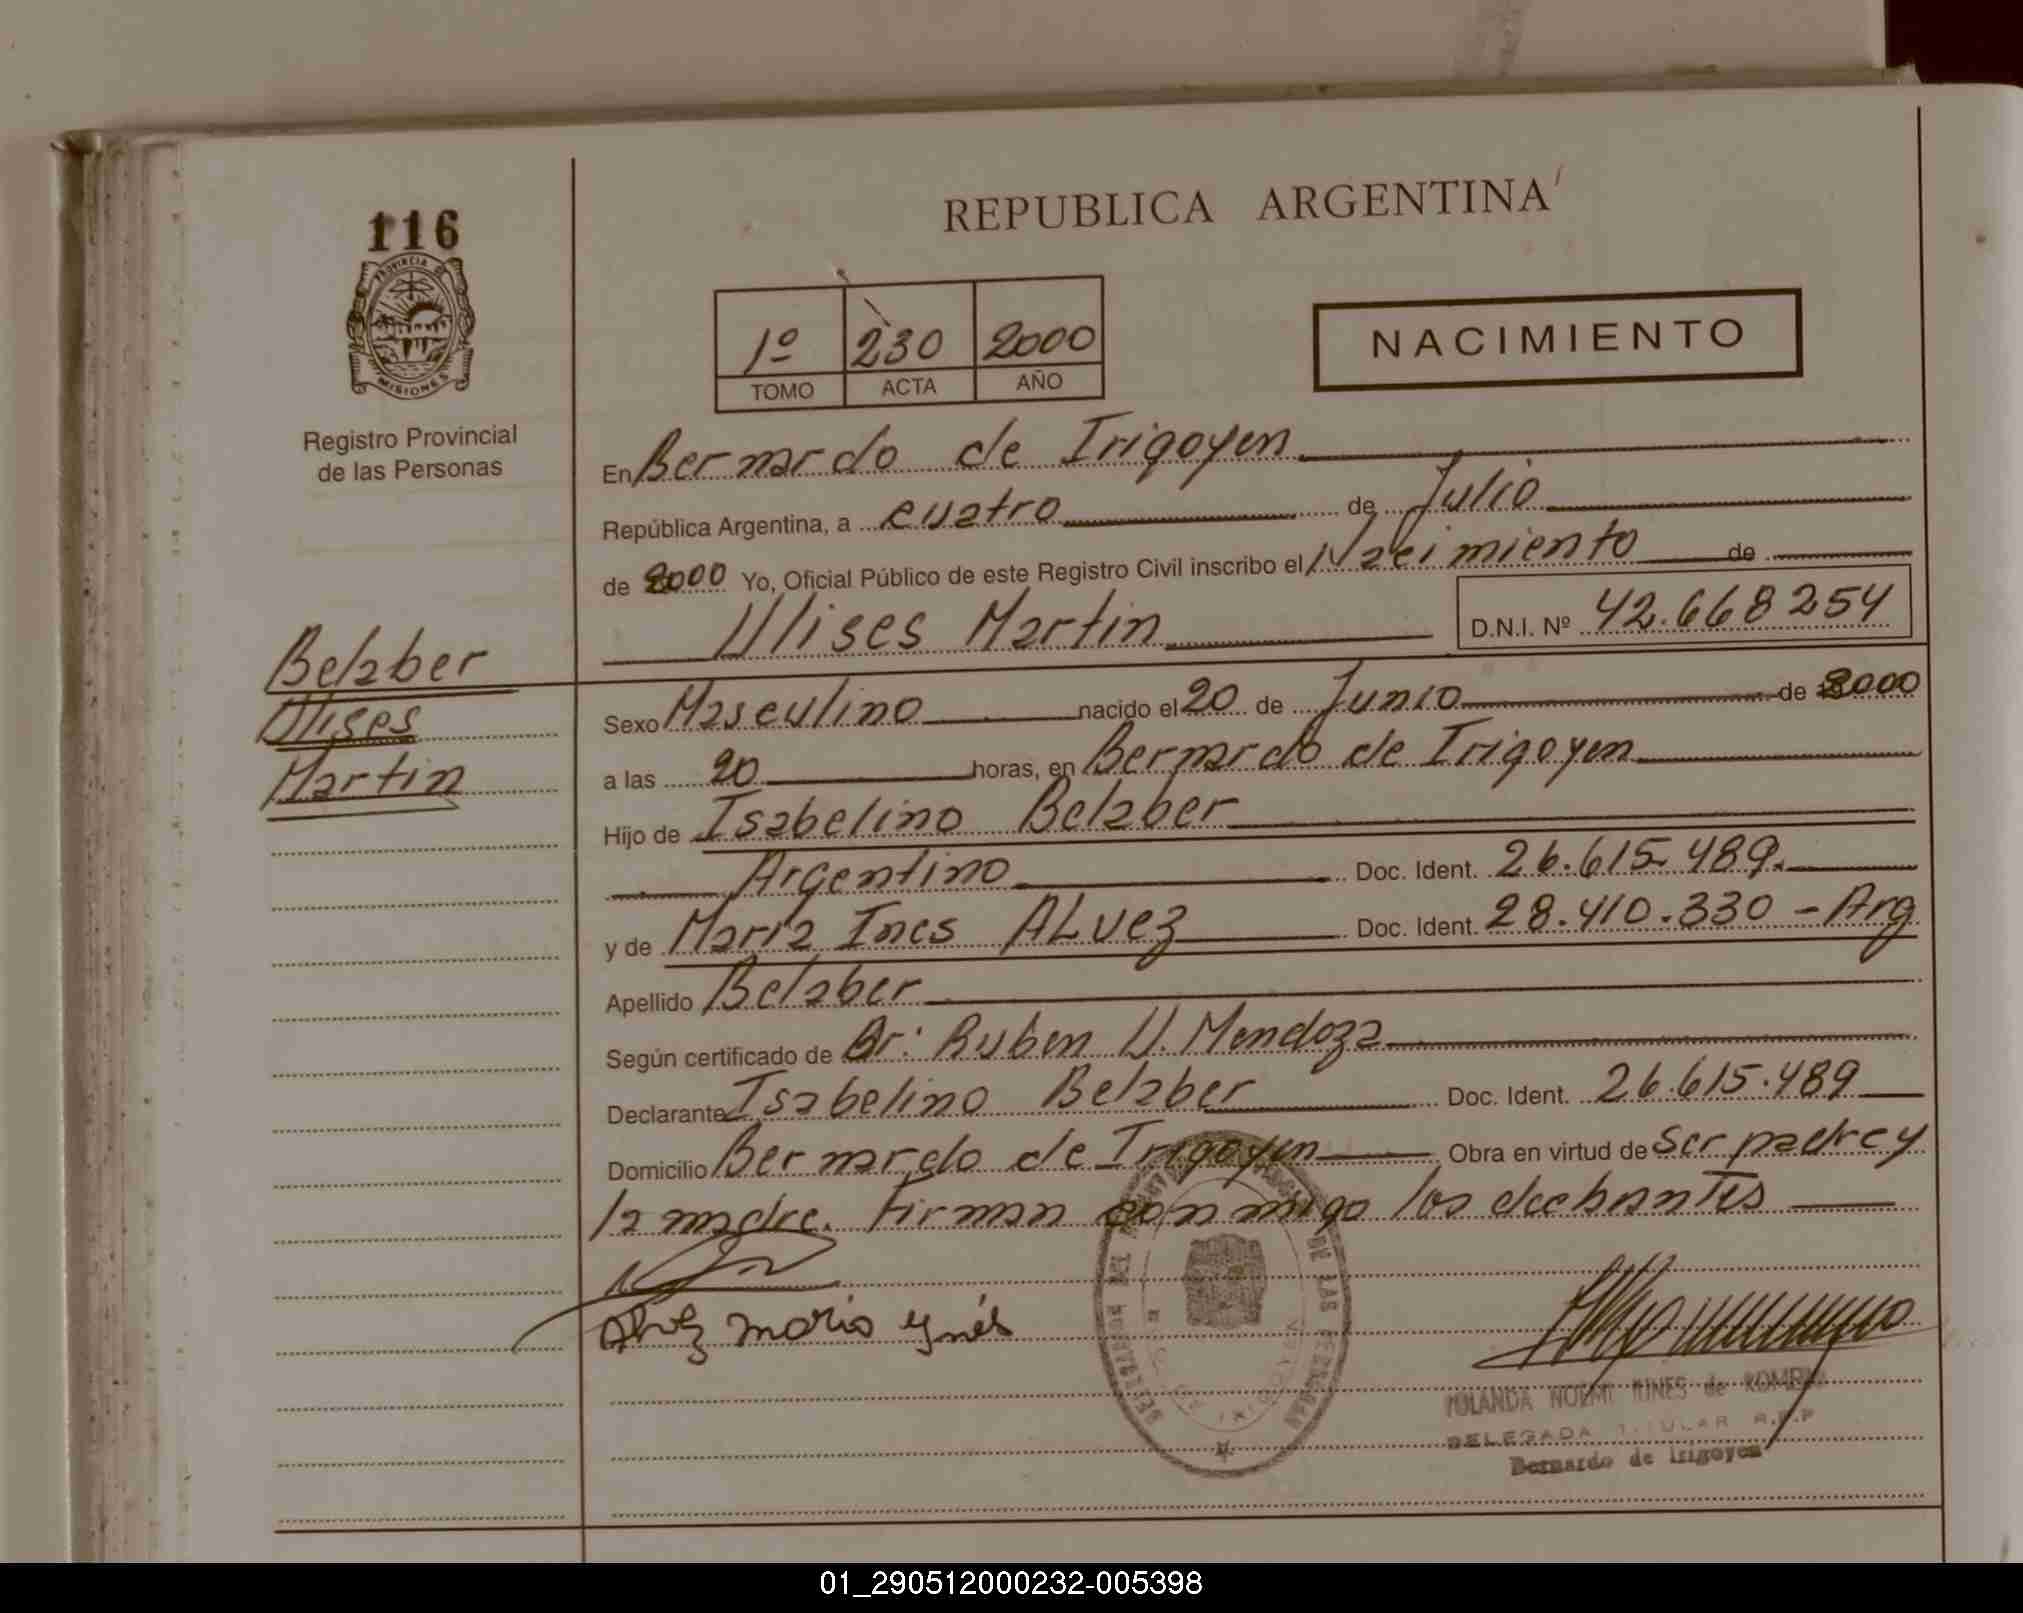 116
PROVINCIA DE
MISIONES
Registro Provincial
de las Personas
Belaber
Ulises
Martin
REPUBLICA ARGENTINA
1º 230 2000
TOMO ACTA AÑO
NACIMIENTO
En Bernardo de Irigoyen
República Argentina, a cuatro de Julio
de 2000 Yo, Oficial Público de este Registro Civil inscribo el Nacimiento de
Ulises Martin D.N.I. Nº 42.668254
Sexo Masculino nacido el 20 de Junio de 2000
a las 20 horas, en Bernardo de Irigoyen
Hijo de Isabelino Belaber
Argentino Doc. Ident. 26.615.489.
y de Maria Ines ALvez Doc. Ident. 28.410.330 - Arg
Apellido Belaber
Según certificado de Dr: Ruben U. Mendoza
Declarante Isabelino Belaber Doc. Ident. 26.615.489
Domicilio Bernardo de Irigoyen Obra en virtud de ser padre y
la madre. Firman conmigo los
Alvez maria ynés
YOLANDA NOEMI de
DELEGADA TITULAR R.P.P
Bernardo de Irigoyen
DE LAS PERSONAS
01_290512000232-005398